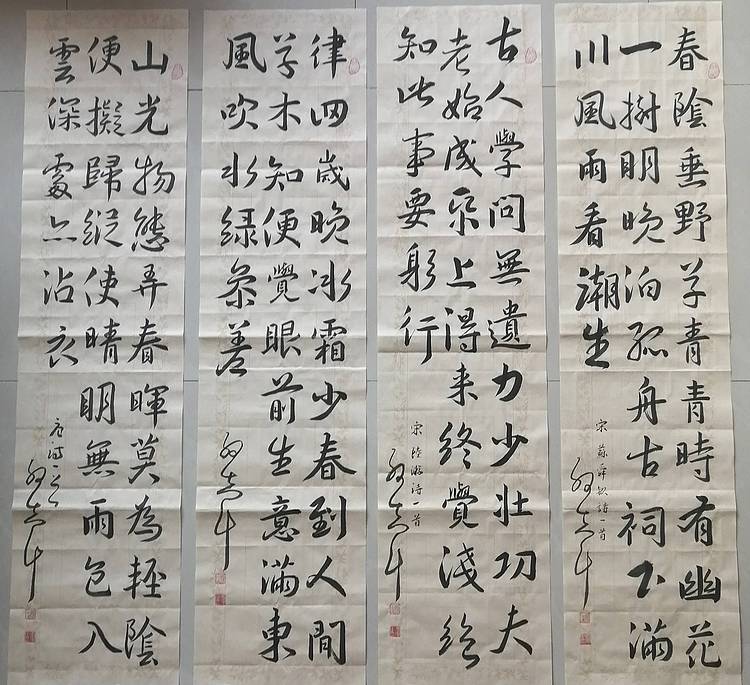 春陰垂野草青青時有幽花
一樹明晚泊孤舟古祠下滿
川風雨看潮生
宋蘇舜欽詩一首
古人學問無遺力少壯功夫
老始成帋上得來終覺淺絕
知此事要躬行
宋陸游詩一首
律回歲晚冰霜少春到人間
草木知便覺眼前生意滿東
風吹水綠參差
山光物態弄春暉莫為輕陰
便擬歸縱使晴明無雨色入
雲深處亦沾衣